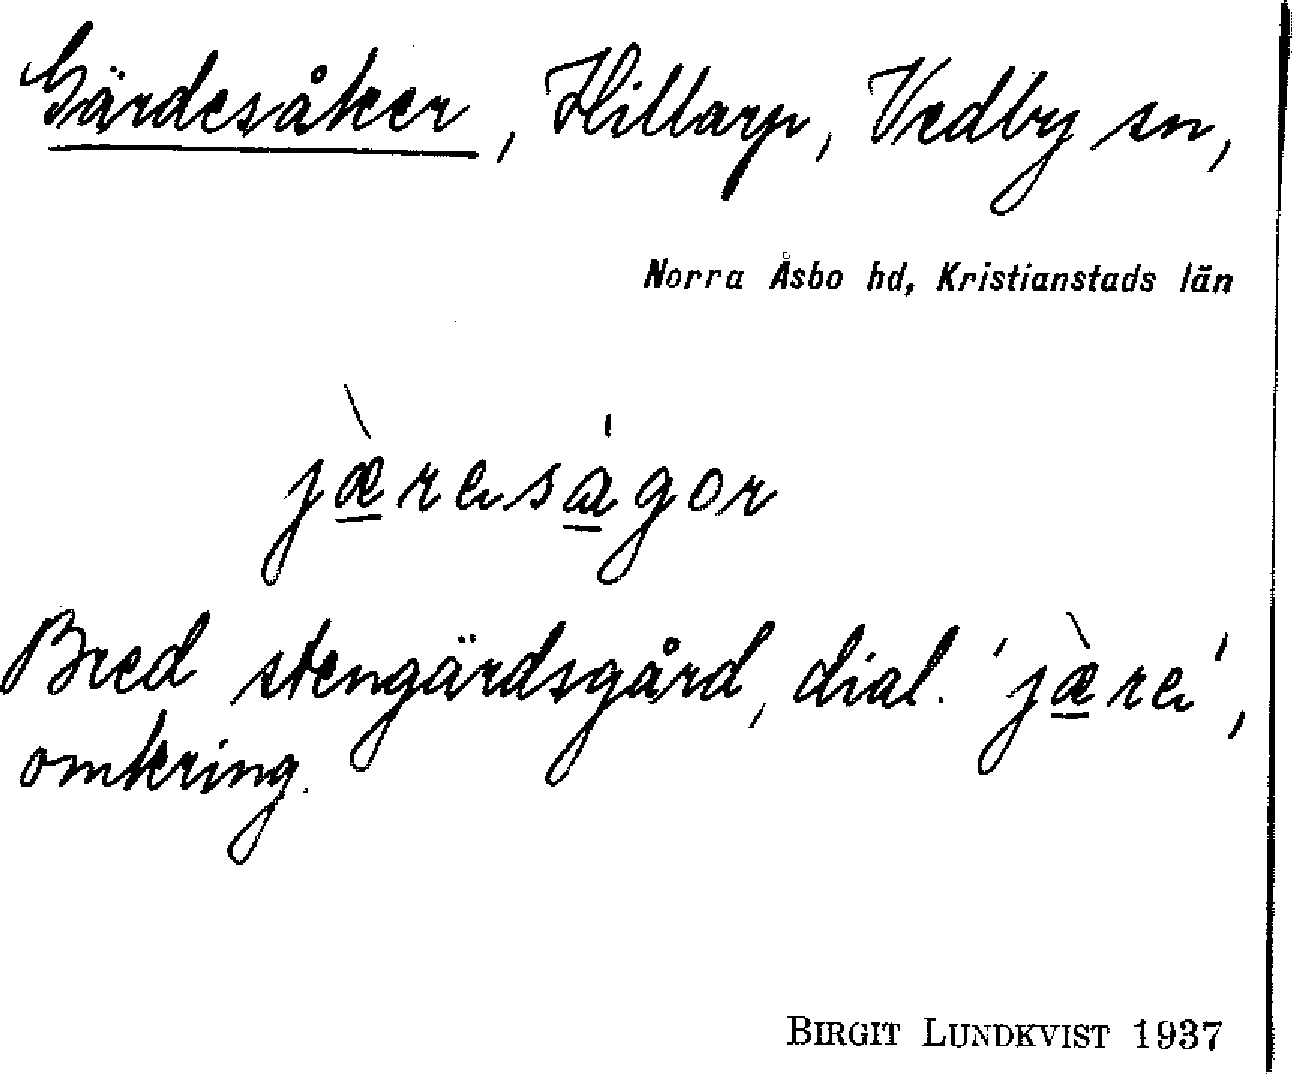 Gärdesåker, Hillarp, Vedby sn,
Norra Åsbo hd, Kristianstads län
jæ̠̀resa̠ʹgor
Bred stengärdsgård, dial. 'jæ̠̀re',
omkring.
BIRGIT LUNDKVIST 1937